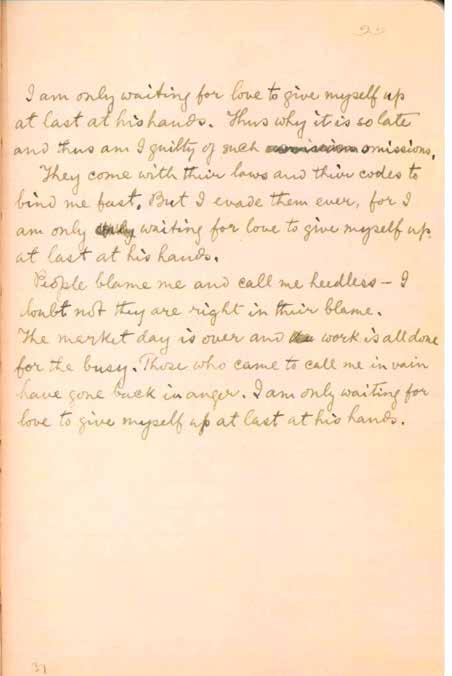 I am only waiting for love to give myself up
at last at his hands. Thus why it is so late
and thus am I guilty of such omissions.
They come with their laws and their codes to
bind me fast. But I evade them ever, for I
am only only waiting for love to give myself up
at last at his hands.
People blame me and call me heedless – I
doubt not they are right in their blame.
The market day is over and the work is all done
for the busy. Those who came to call me in vain
have gone back in anger. I am only waiting for
love to give myself up at last at his hands.